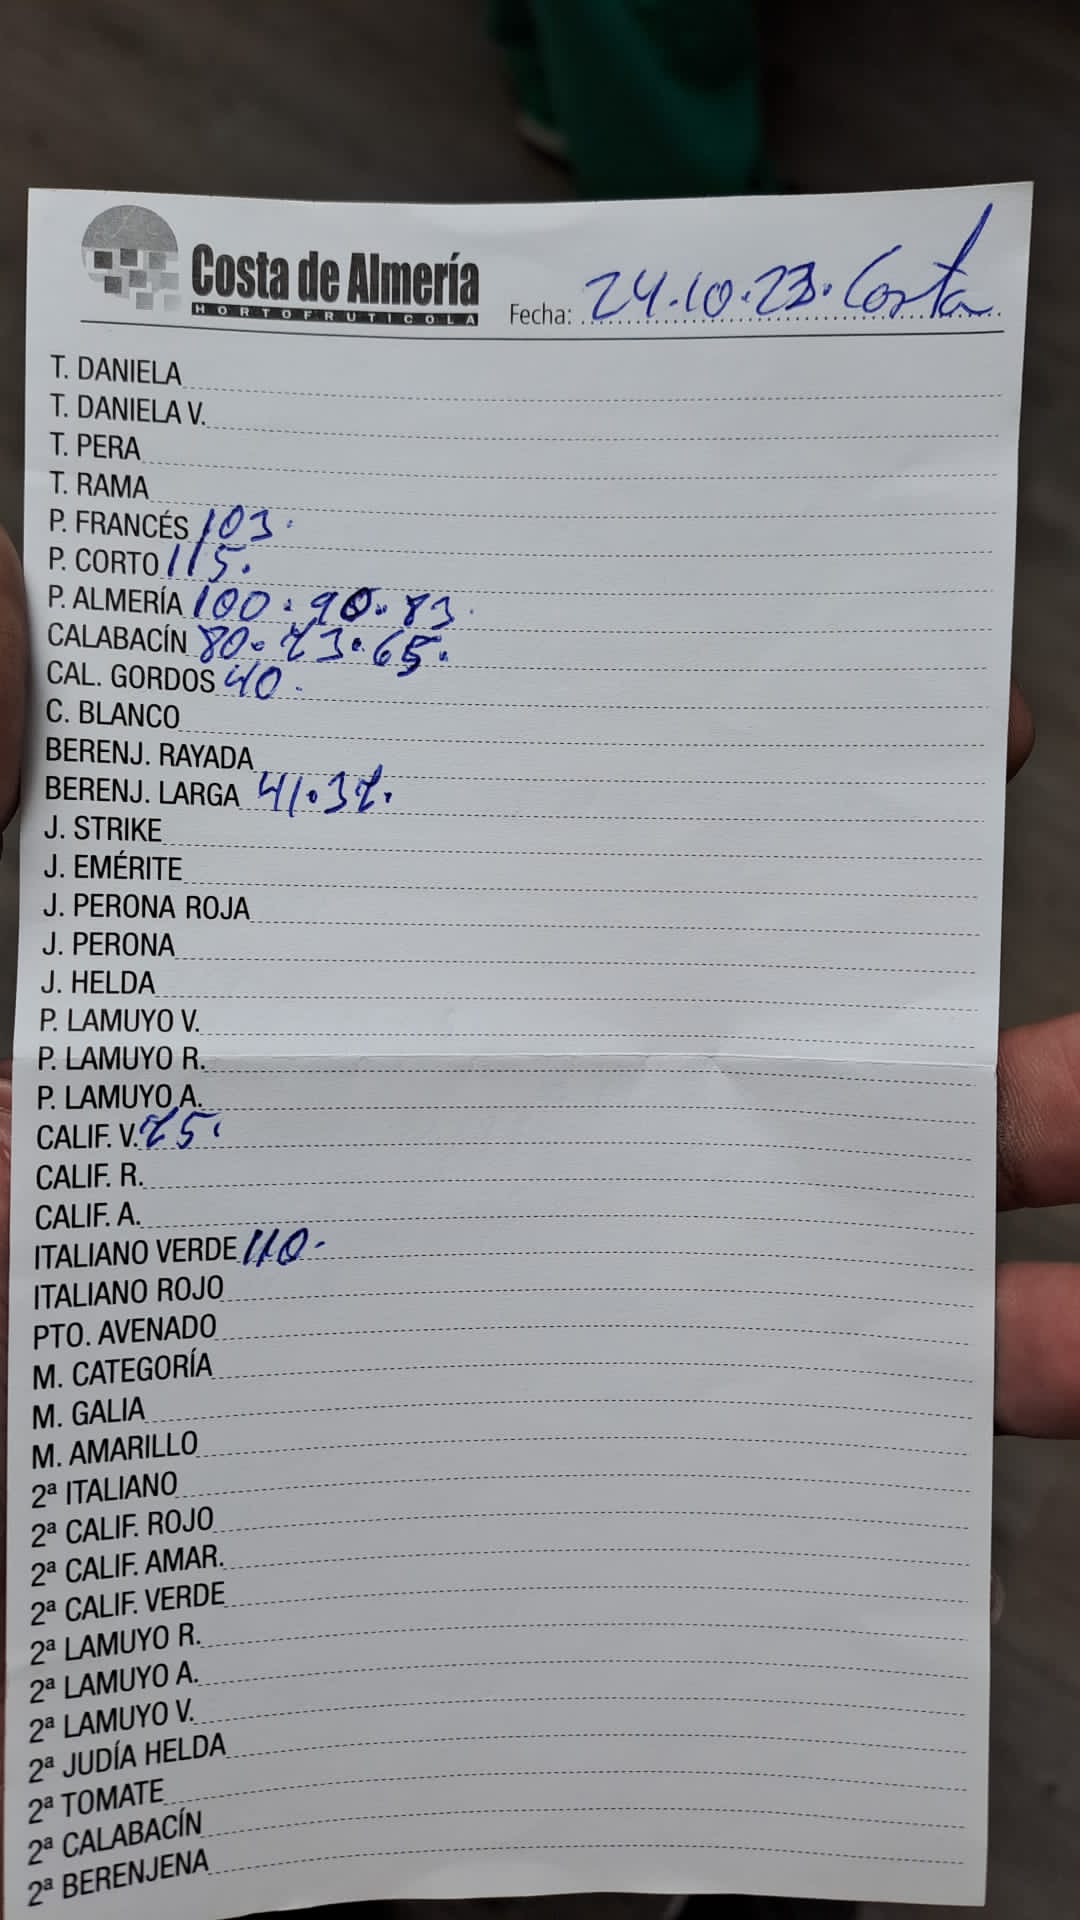 Costa de Almería
HORTOFRUTICOLA
Fecha: 24.10.23. Costa
T. DANIELA
T. DANIELA V.
T. PERA
T. RAMA
P. FRANCÉS 103.
P. CORTO 115.
P. ALMERÍA 100. 90. 83.
CALABACÍN 80. 73. 65.
CAL. GORDOS 40.
C. BLANCO
BERENJ. RAYADA
BERENJ. LARGA 41. 37.
J. STRIKE
J. EMÉRITE
J. PERONA ROJA
J. PERONA
J. HELDA
P. LAMUYO V.
P. LAMUYO R.
P. LAMUYO A.
CALIF. V. 75.
CALIF. R.
CALIF. A.
ITALIANO VERDE 110.
ITALIANO ROJO
PTO. AVENADO
M. CATEGORÍA
M. GALIA
M. AMARILLO
2ª ITALIANO
2ª CALIF. ROJO
2ª CALIF. AMAR.
2ª CALIF. VERDE
2ª LAMUYO R.
2ª LAMUYO A.
2ª LAMUYO V.
2ª JUDÍA HELDA
2ª TOMATE
2ª CALABACÍN
2ª BERENJENA